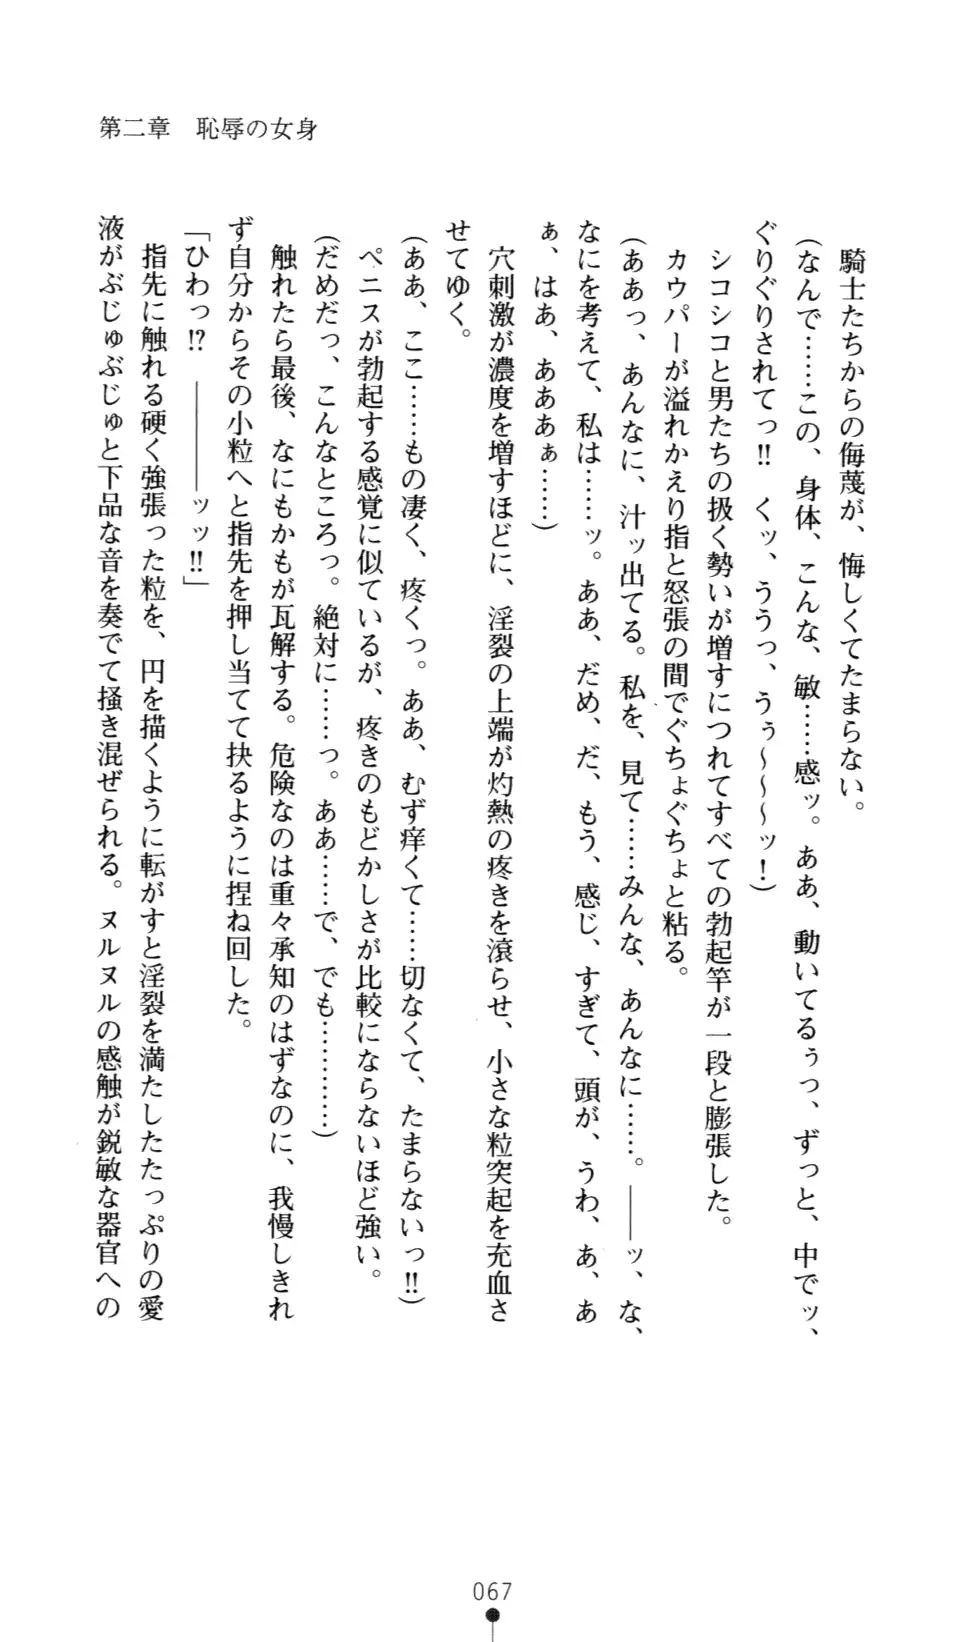 第二章　恥辱の女身
騎士たちからの侮蔑が、悔しくてたまらない。
（なんで……この、身体、こんな、敏……感ッ。ああ、動いてるぅっ、ずっと、中でッ、
ぐりぐりされてっ‼　くッ、ううっ、うぅ～～～ッ！）
シコシコと男たちの扱く勢いが増すにつれてすべての勃起竿が一段と膨張した。
カウパーが溢れかえり指と怒張の間でぐちょぐちょと粘る。
（ああっ、あんなに、汁ッ出てる。私を、見て……みんな、あんなに……。――ッ、な、
なにを考えて、私は……ッ。ああ、だめ、だ、もう、感じ、すぎて、頭が、うわ、あ、あ
ぁ、はあ、あああぁ……）
穴刺激が濃度を増すほどに、淫裂の上端が灼熱の疼きを滾らせ、小さな粒突起を充血さ
せてゆく。
（ああ、ここ……もの凄く、疼くっ。ああ、むず痒くて……切なくて、たまらないっ‼）
ペニスが勃起する感覚に似ているが、疼きのもどかしさが比較にならないほど強い。
（だめだっ、こんなところっ。絶対に……っ。ああ……で、でも…………）
触れたら最後、なにもかもが瓦解する。危険なのは重々承知のはずなのに、我慢しきれ
ず自分からその小粒へと指先を押し当てて抉るように捏ね回した。
「ひわっ⁉　――――ッッ‼」
指先に触れる硬く強張った粒を、円を描くように転がすと淫裂を満たしたたっぷりの愛
液がぶじゅぶじゅと下品な音を奏でて掻き混ぜられる。ヌルヌルの感触が鋭敏な器官への
067